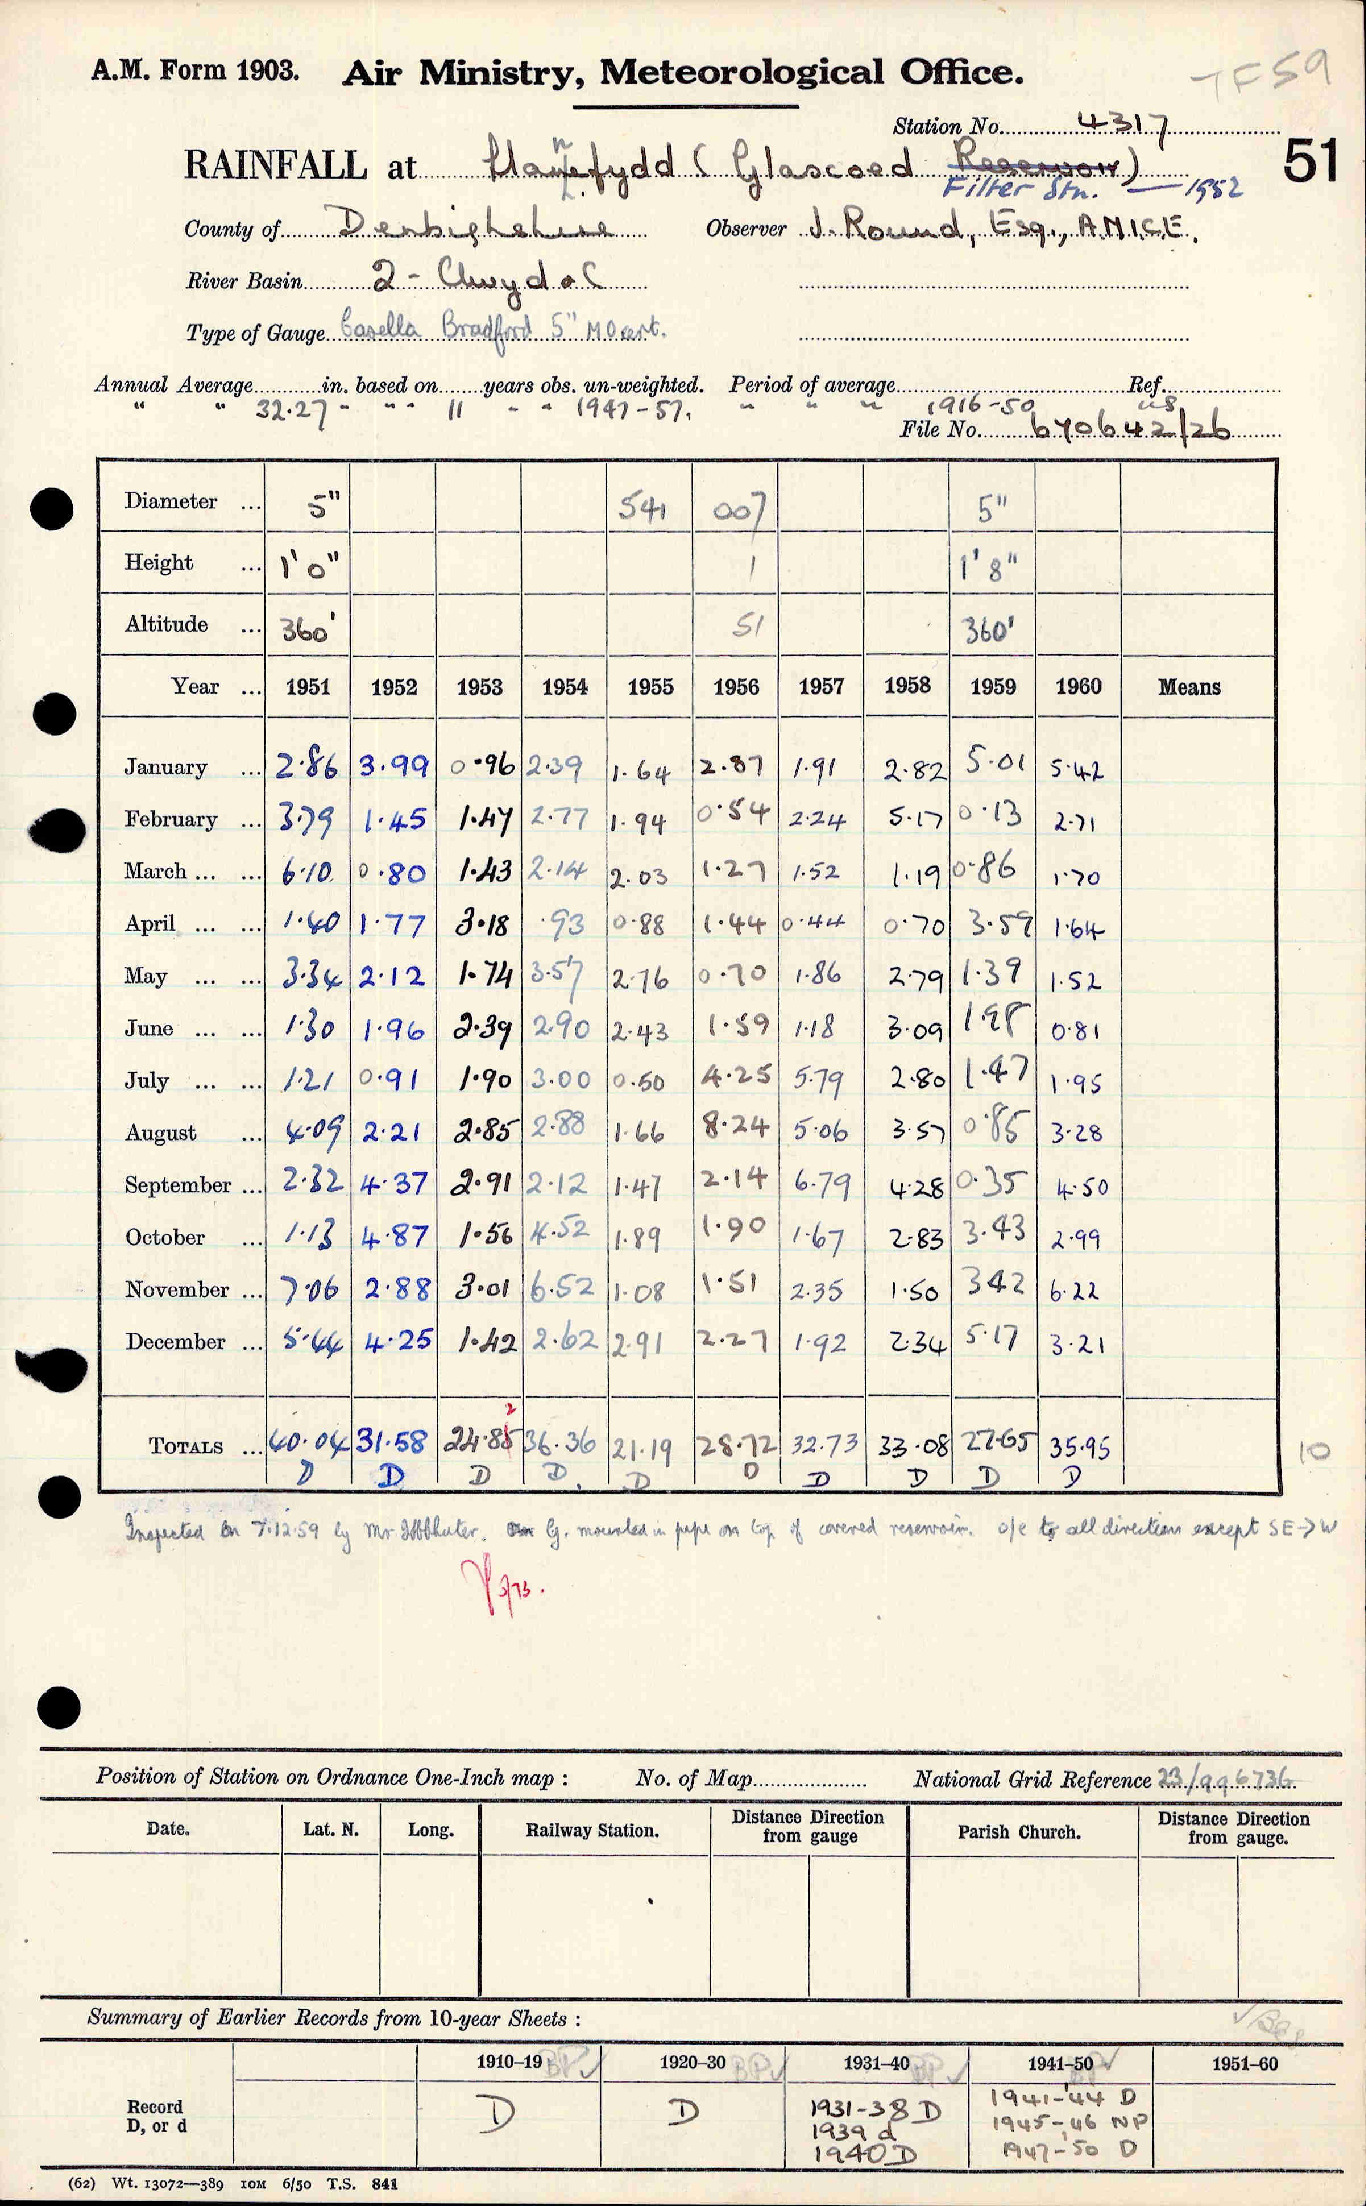 A.M. Form 1903. Air Ministry, Meteorological Office.
TF59
Station No. 4317
RAINFALL at Llannefydd (Glascoed Reservoir)
51
Filter Stn. — 1952
County of Denbighshire Observer J. Round, Esq., A.M.I.C.E.
River Basin 2 - Clwyd &C
Type of Gauge Casella Bradford 5" M O cert.
Annual Average in. based on years obs. un-weighted. Period of average Ref.
" " 32.27 " " " 11 " " 1947-57. " " " 1916-50
File No. 670642/26
Diameter ... 5" 541 007 5"
Height ... 1' 0" 1 1' 8"
Altitude ... 360' 51 360'
Year ... 1951 1952 1953 1954 1955 1956 1957 1958 1959 1960 Means
January ... 2.86 3.99 0.96 2.39 1.64 2.87 1.91 2.82 5.01 5.42
February ... 3.79 1.45 1.47 2.77 1.94 0.54 2.24 5.17 0.13 2.71
March ... ... 6.10 0.80 1.43 2.14 2.03 1.27 1.52 1.19 0.86 1.70
April ... ... 1.40 1.77 3.18 .93 0.88 1.44 0.44 0.70 3.59 1.64
May ... ... 3.34 2.12 1.74 3.57 2.76 0.70 1.86 2.79 1.39 1.52
June ... ... 1.30 1.96 2.39 2.90 2.43 1.59 1.18 3.09 1.98 0.81
July ... ... 1.21 0.91 1.90 3.00 0.50 4.25 5.79 2.80 1.47 1.95
August ... 4.09 2.21 2.85 2.88 1.66 8.24 5.06 3.57 0.85 3.28
September ... 2.32 4.37 2.91 2.12 1.47 2.14 6.79 4.28 0.35 4.50
October ... 1.13 4.87 1.56 4.52 1.89 1.90 1.67 2.83 3.43 2.99
November ... 7.06 2.88 3.01 6.52 1.08 1.51 2.35 1.50 3.42 6.22
December ... 5.44 4.25 1.42 2.62 2.91 2.27 1.92 2.34 5.17 3.21
2
TOTALS ... 40.04 31.58 24.85 36.36 21.19 28.72 32.73 33.08 27.65 35.95
10
D D D D. D D D D D D
Inspected on 7.12.59 by Mr. G. mounted in pipe on top of covered reservoir. o/e to all direction except SE → W
3/73.
Position of Station on Ordnance One-Inch map : No. of Map National Grid Reference 23/996736
Date. Lat. N. Long. Railway Station. Distance Direction from gauge Parish Church. Distance Direction from gauge.
Summary of Earlier Records from 10-year Sheets :
1910–19 1920–30 1931–40 1941–50 1951–60
BP✓ BP✓ BP✓ BP✓
Record D, or d D D 1931-38 D 1941-'44 D
1939 d 1945-'46 NP
1940 D 1947-50 D
(62) Wt. 13072—389 10M 6/50 T.S. 841